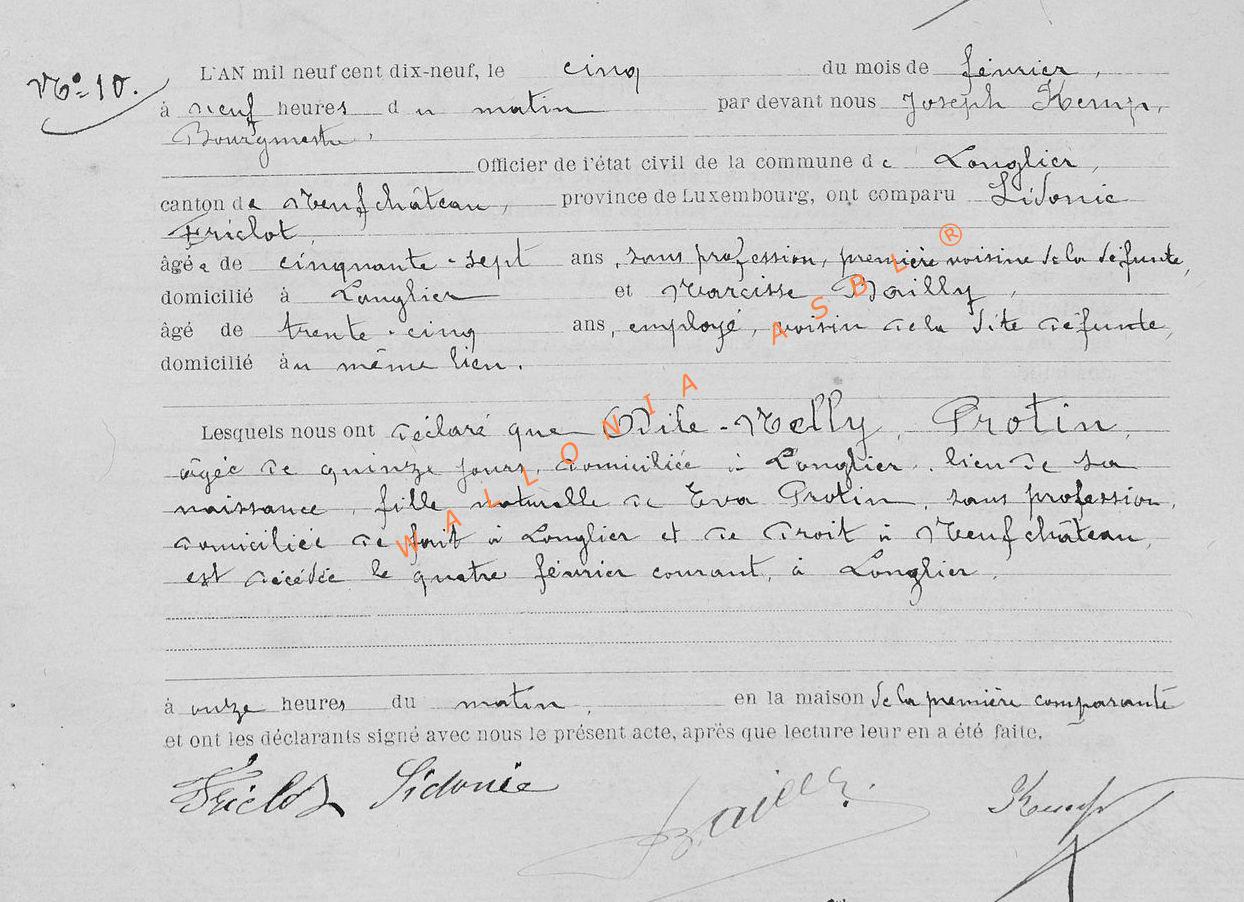 N° 10.
L'AN mil neuf cent dix-neuf, le cinq du mois de février,
à neuf heures du matin par devant nous Joseph Kemp,
Bourgmestre,
Officier de l'état civil de la commune de Longlier,
canton de Neufchâteau, province de Luxembourg, ont comparu Sidonie
Friclot,
âgée de cinquante-sept ans, sans profession, première voisine de la défunte,
domicilié à Longlier et Narcisse Bailly,
âgé de trente-cinq ans, employé, voisin de la dite défunte,
domicilié au même lieu.
Lesquels nous ont déclaré que Odile-Nelly Protin,
âgée de quinze jours, domiciliée à Longlier, lieu de sa
naissance, fille naturelle de Eva Protin, sans profession,
domiciliée de fait à Longlier et de droit à Neufchâteau,
est décédée le quatre février courant, à Longlier.
à onze heures du matin, en la maison de la première comparante
et ont les déclarants signé avec nous le présent acte, après que lecture leur en a été faite.
Friclot Sidonie Bailly Kemp
WALLONIA ASBL ®